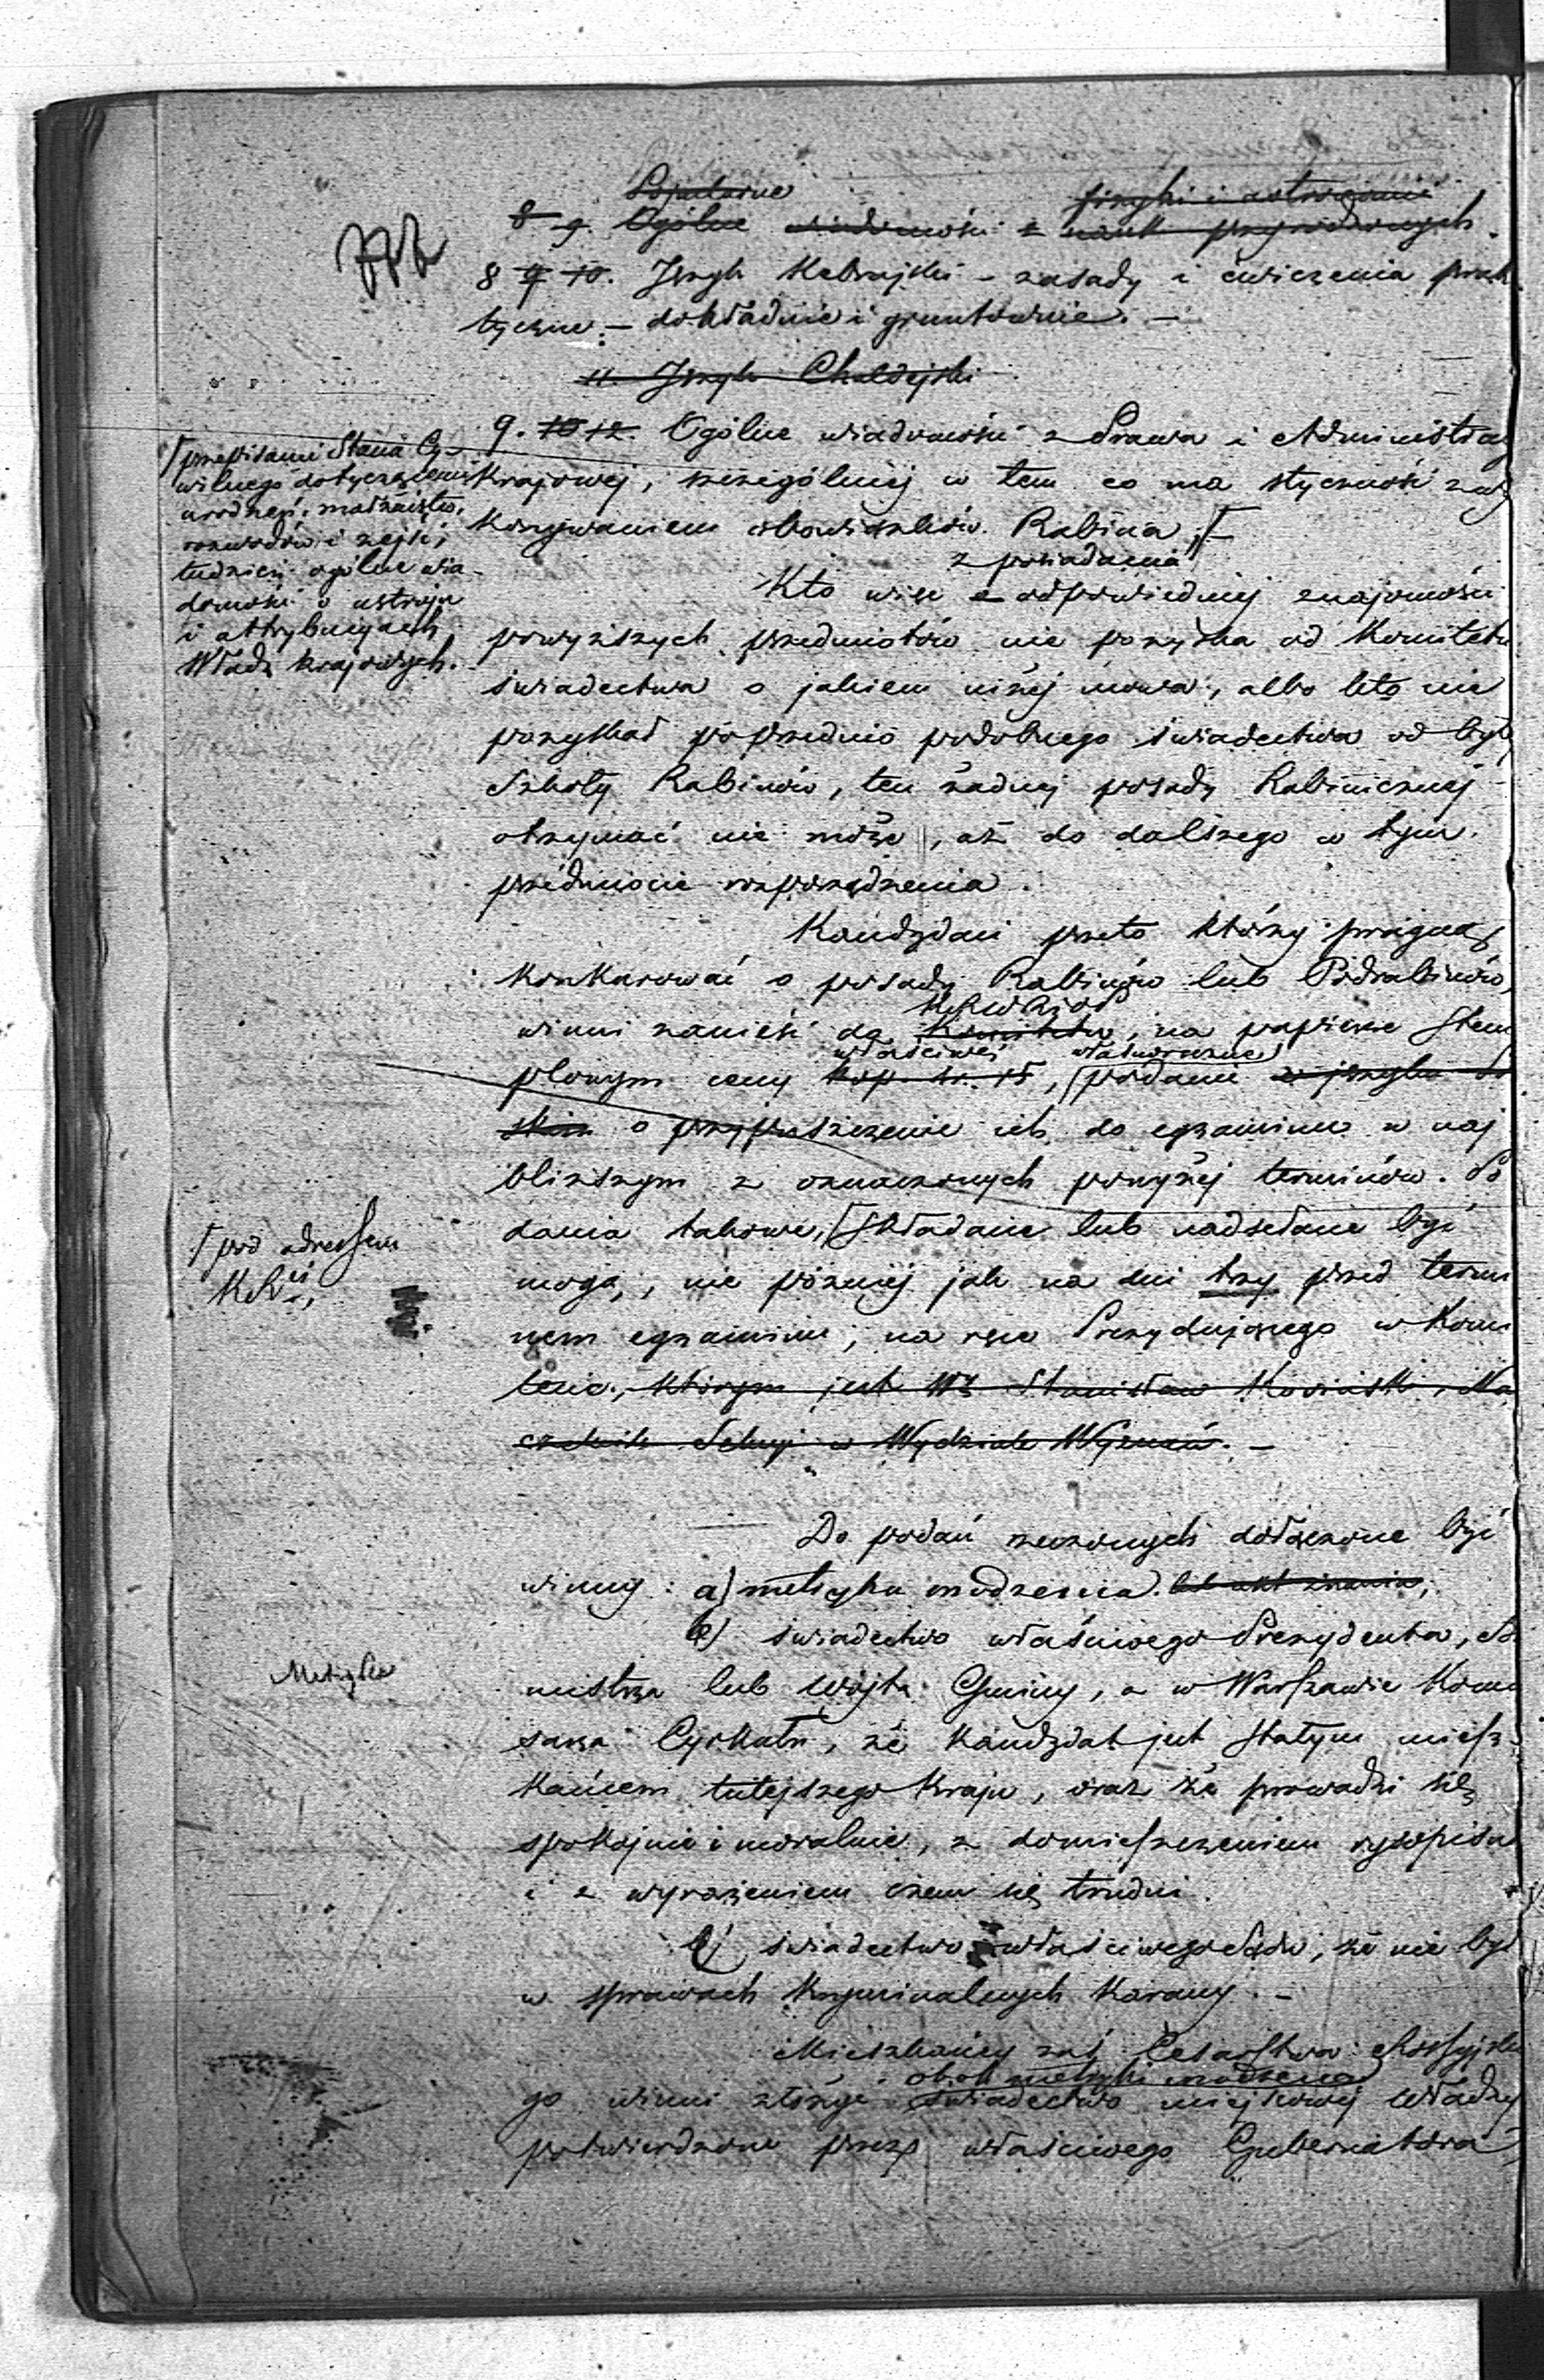 Popularne fizyki i astronomii
8 9. Ogólne wiadomości z nauk przyrodzonych.
8 9 10. Język Hebrajski – zasady i ćwiczenia prak
tyczne – dokładnie i gruntownie. –
11. Język Chaldejski
9. 10 12. Ogólne wiadomości z Prawa i Administrac
Krajowej, szczególniej w tem co ma styczność z wy
konywaniem obowiązków Rabina,
przepisami Stanu Cy-
wilnego dotyczącemi
urodzeń, małżeństw,
rozwodów i zejść,
tudzież ogólne wia-
domości o ustroju
i attrybucyach
Władz krajowych.
z posiadania
Kto więc z odpowiedniej znajomości
powyższych przedmiotów nie pozyska od Komitetu
świadectwa o jakiem niżej mowa, albo też nie
pozyskał poprzednio podobnego świadectwa od był
Szkoły Rabinów, ten żadnej posady Rabinicznej
otrzymać nie może, aż do dalszego w tym
przedmiocie rozporządzenia.
Kandydaci przeto którzy pragną
konkurować o posady Rabinów lub Podrabinów,
winni zanieść do Komitetu, na papierze stem
właściwej własnoręczne
plowym ceny kop. sr. 15, podanie w języku Pol
skim o przypuszczenie ich do egzaminu w naj
bliższym z oznaczonych powyżej terminów. Po
dania takowe, składane lub nadsełane być
pod adressem
mogą, nie później jak na dni trzy przed termi
nem egzaminu, na ręce Prezydującego w Komi
tecie, którym jest Wy Stanisław Kosiński, Na
czelnik Sekcyi w Wydziale Wyznań. –
Do podań rzeczonych dołączone być
winny: a) metryka urodzenia lub akt znania,
b) świadectwo właściwego Prezydenta, Bur
Metryka
mistrza lub Wójta Gminy, a w Warszawie Komi
sarza Cyrkułu, że kandydat jest stałym miesz-
kańcem tutejszego kraju, oraz że prowadzi się
spokojnie i moralnie, z domieszczeniem rysopisu
i z wyrażeniem czem się trudni.
c) świadectwo właściwego Sądu, że nie był
w sprawach kryminalnych karany. –
Mieszkańcy zaś Cesarstwa Rossyjskie
obok metryki urodzenia
go winni złożyć świadectwo miejscowej władzy
potwierdzone przez właściwego Gubernatora,